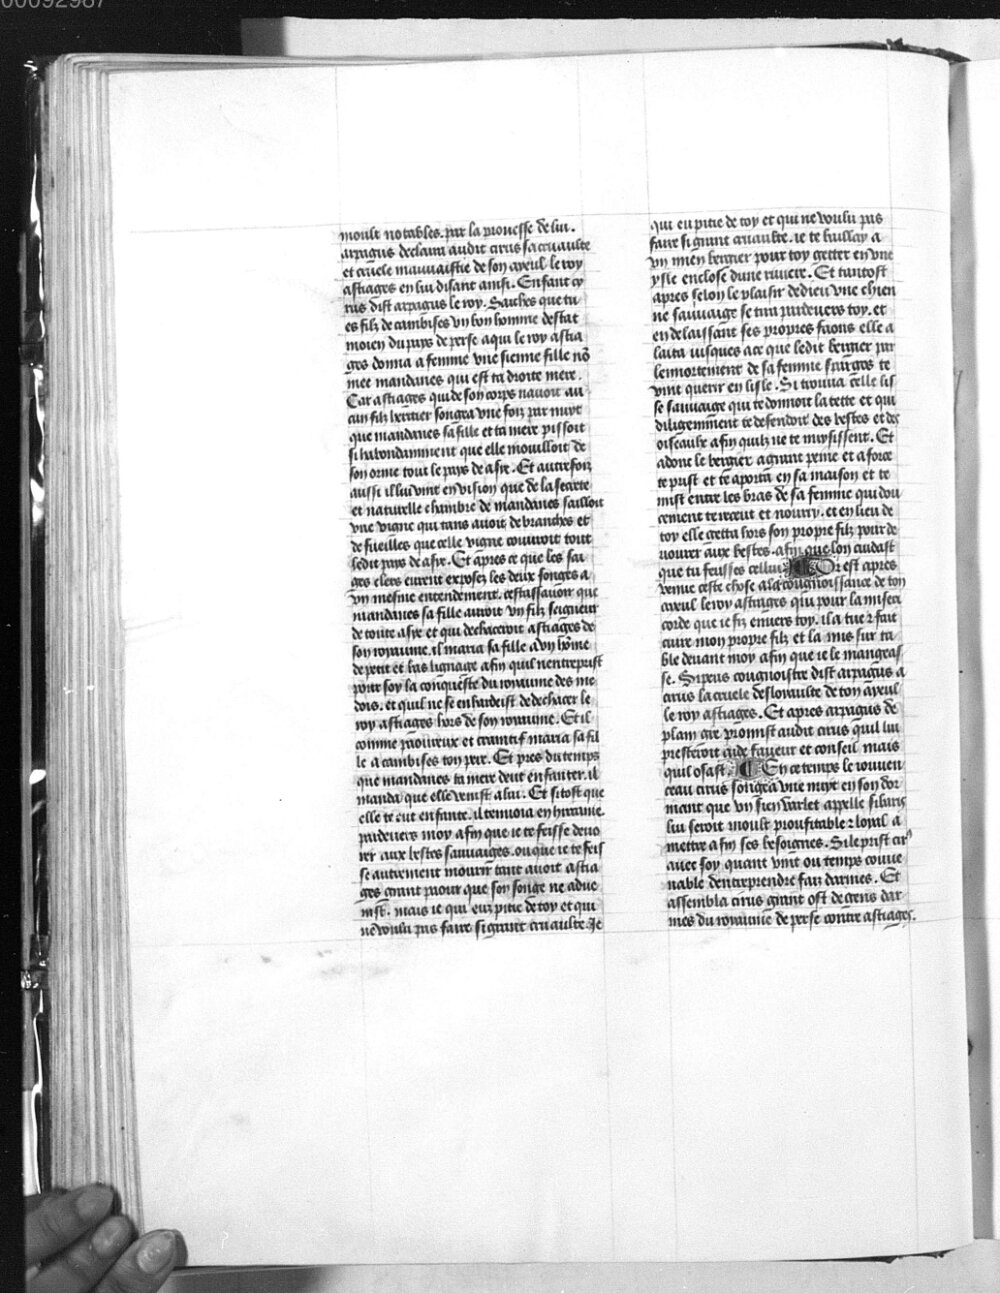 00092987
moult notables. par la prouesse de lui.
arpagus declaira audit cirus sa cruaulte
et cruele mauuaistie de son ayeul le roy
astiages en lui disant ainsi. Enfant cy
rus dist arpagus le roy. Saiches que tu
es filz de cambises vn bon homme destat
moien du pays de perse a qui le roy astia
ges donna a femme vne sienne fille nō
mee mandanes qui est ta droite mere.
Car astiages qui de son corps nauoit au
cun filz heritier songea vne foiz par nuyt
que mandanes sa fille et ta mere pissoit
si habondamment que elle mouilloit de
son orine tout le pays de asie. Et autrefoiz
aussi illui vint en vision que de la secrete
et naturelle chambre de mandanes sailloit
vne vigne qui tans auoit de branches et
de fueilles que celle vigne couuroit tout
ledit pays de asie. Et apres ce que les sai
ges clers eurent exposez les deux songes a
vn mesme entendement. cestassauoir que
mandanes sa fille auroit vn filz seigneur
de toute asie et qui dechaceroit astiages de
son royaume. il maria sa fille a vn hōme
de petit et bas lignage afin quil nentreprist
pour soy la conqueste du royaume des me
dois. et quil ne se enhardeist de dechacer le
roy astiages hors de son royaume. Et il
comme paoureux et craintif maria sa fil
le a cambises ton pere. Et pres du temps
que mandanes ta mere deut enfanter. il
manda que elle venist a lui. Et sitost que
elle te eut enfante. il tenuoia en hircanie
pardeuers moy afin que ie te feisse deuo
rer aux bestes sauuaiges. ou que ie te feis
se autrement mourir tant auoit astia
ges grant paour que son songe ne adue
nist. mais ie qui euz pitie de toy et qui
ne voulu pas faire si grant cruaulte. Je
qui eu pitie de toy et qui ne voulu pas
faire si grant cruaulte. ie te baillay a
vn mien bergier pour toy getter en vne
ysle enclose dune riuiere. Et tantost
apres selon le plaisir de dieu vne chien
ne sauuaige se tira pardeuers toy. et
en delaissant ses propres faons elle a
laita iusques a ce que ledit bergier par
lenortement de sa femme spargos te
vint querir en lisle. Si trouua celle lis
se sauuaige qui te donnoit la tette et qui
diligemment te defendoit des bestes et des
oiseaulx afin quilz ne te nuysissent. Et
adont le bergier a grant peine et a force
te prist et te aporta en sa maison et te
mist entre les bras de sa femme qui dou
cement te receut et nourry. et en lieu de
toy elle getta hors son propre filz pour de
uourer aux bestes. afin que lon cuidast
que tu feusses cellui. Or est apres
venue ceste chose a la congnoissance de ton
ayeul le roy astiages qui pour la miseri
corde que ie fiz enuers toy. il a tue et fait
cuire mon propre filz et la mis sur ta
ble deuant moy afin que ie le mangeas
se. Si peus congnoistre dist arpagus a
cirus la cruele desloyaulte de ton ayeul
le roy astiages. Et apres arpagus de
plain gre promist audit cirus quil lui
presteroit aide faueur et conseil mais
quil osast. En ce temps le iouuen
ceau cirus songea vne nuyt en son dor
mant que vn sien varlet appelle sibaris
lui seroit moult prouffitable et loyal a
mettre a fin ses besoignes. Si le prist cir9
auec soy quant vint ou temps conue
nable dentreprendre faiz darmes. Et
assembla cirus grant ost de gens dar
mes du royaume de perse contre astiages.